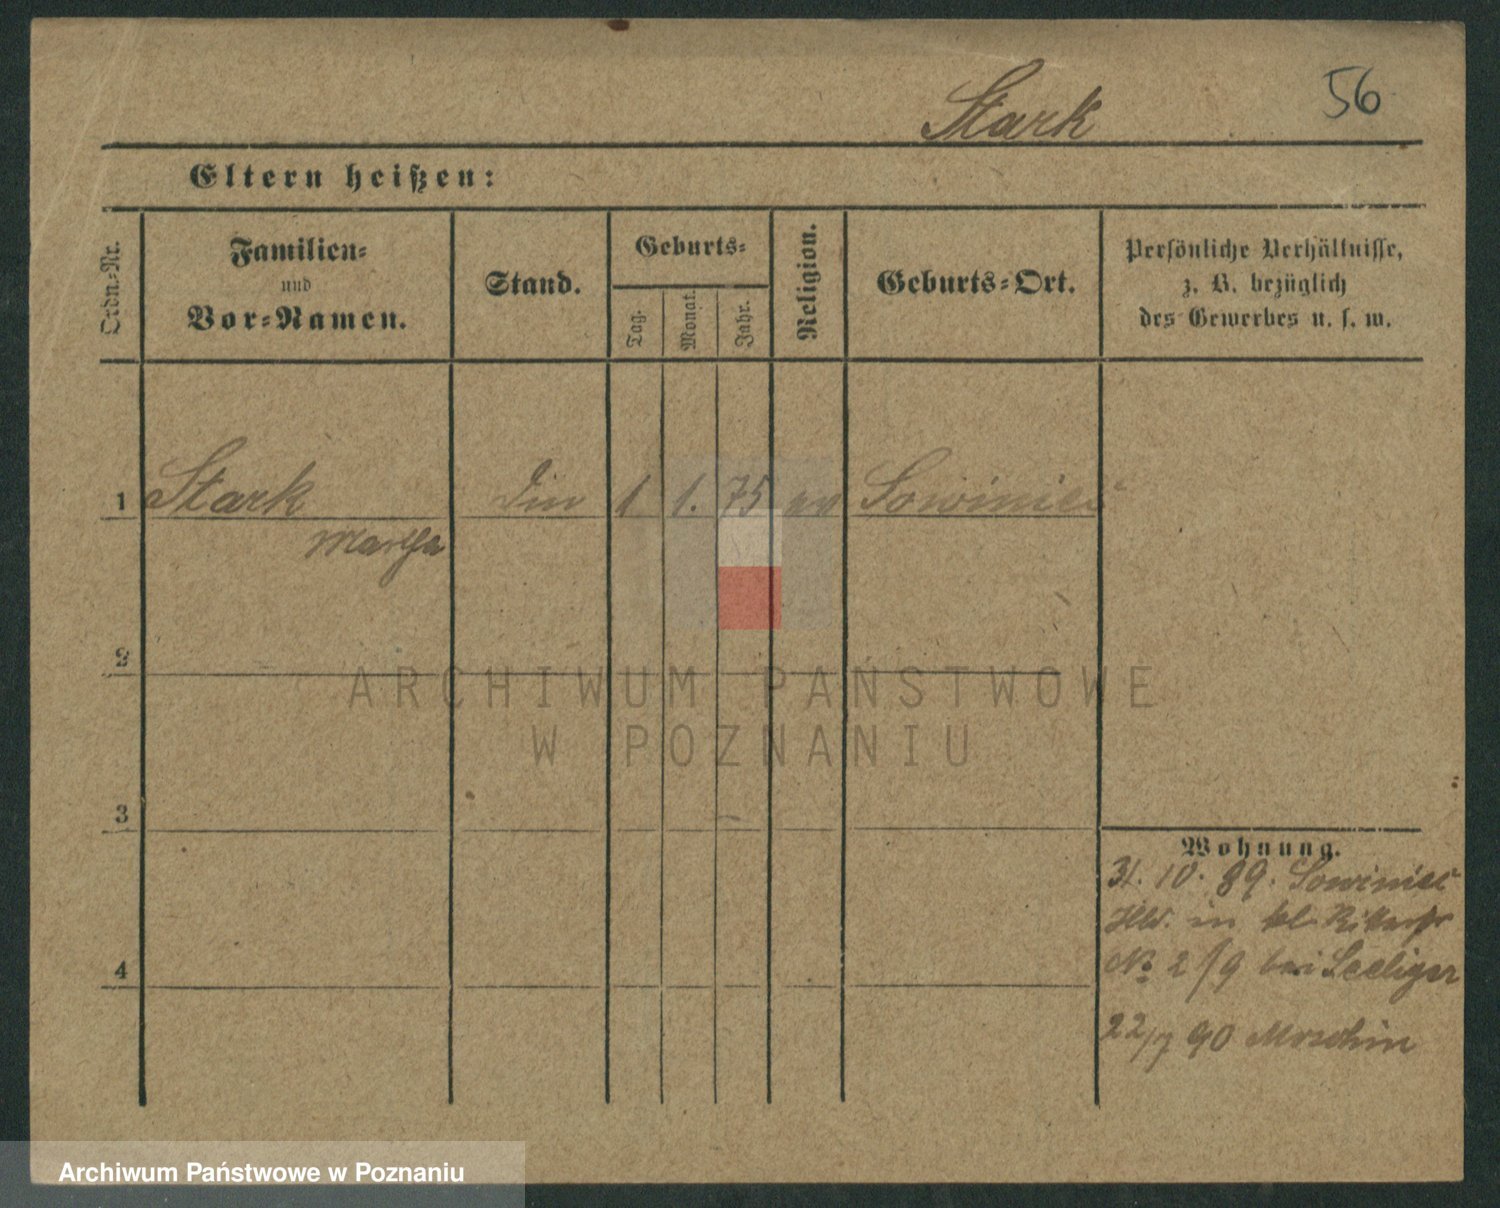 Stark 56
Eltern heißen:
Ordn.-Nr.
Familien-
und
Vor-Namen.
Stand.
Geburts-
Tag.
Monat.
Jahr.
Religion.
Geburts-Ort.
Persönliche Verhältnisse,
z. B. bezüglich
des Gewerbes u. s. w.
1 Stark 1 1. 75 ev Sowiniec
Martha
2
ARCHIWUM PAŃSTWOWE
W POZNANIU
3
Wohnung.
31. 10. 89. Sowiniec
in kl. Ritterstr
4
No 2/9 bei Seeliger
22/7 90 Moschin
Archiwum Państwowe w Poznaniu